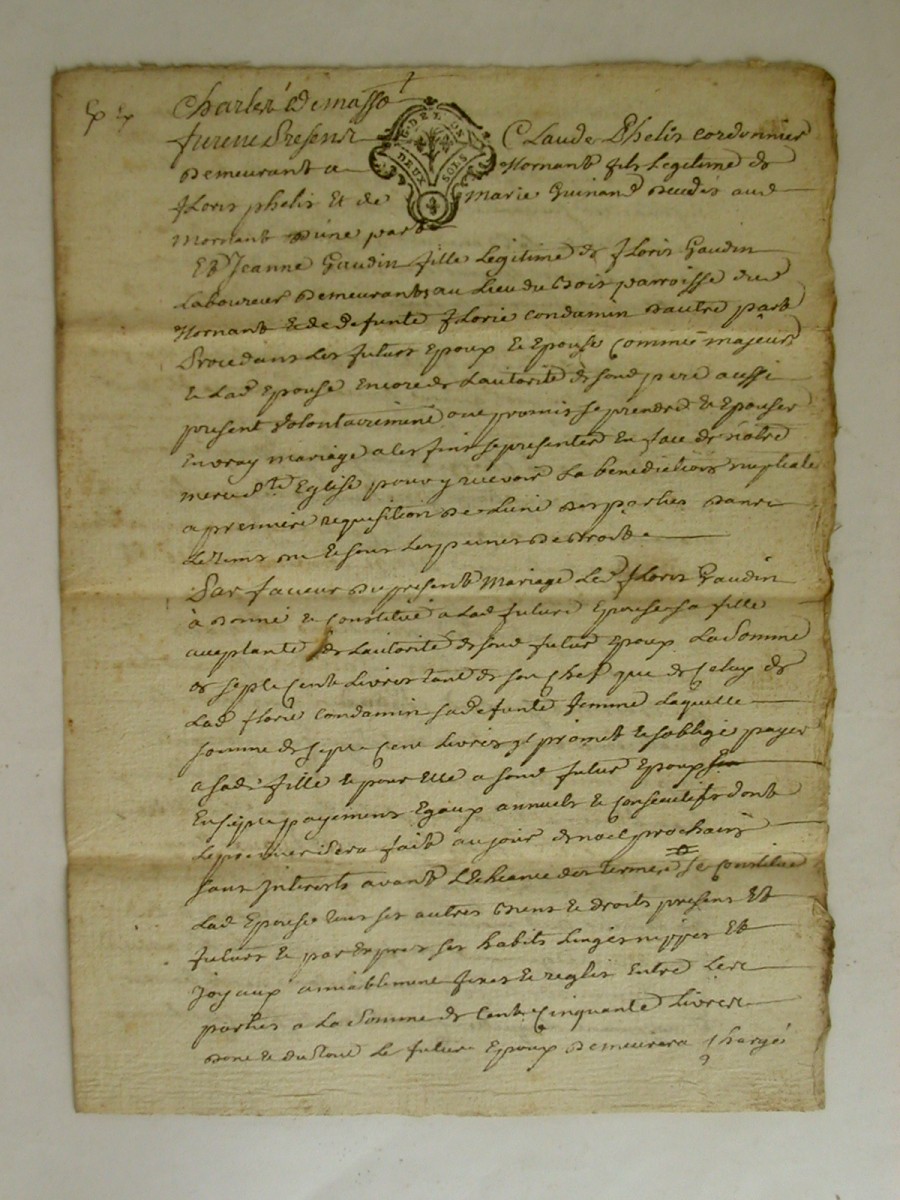 Charles Demasso
furent Presents Claude Phelis cordonnier
G. DE LYON
DEUX SOLS
4
Demeurant a Mornant fils Legitime de
floris phelis et de Marie Guinand decedes aud
Mornant d'une part
Et Jeanne Gaudin fille Legitime de floris Gaudin
Laboureur Demeurants au Lieu du bois parroisse dud
Mornant & de defunte florie condamin d'autre part
Procedans Les futurs Epoux & Epouse Comme majeurs
& Lad Epouse Encore de Lautorité de sond pere aussi
present Volontairement ont promis se prendre & Epouser
En vray mariage a ces fins se presenter En face de notre
mere Ste Eglise pour y recevoir La benediction nuptiale
a premiere requisition de Lune des parties dans
Le tems & sous Les peines de droit
Par faveur du present Mariage Led floris Gaudin
à donné & Constitué a Lad future Epouse sa fille
acceptante de Lautorité de sond futur Epoux La Somme
de sept Cent Livres tant de son Chef que de Celuy de
Lad florie condamin sa defunte femme Laquelle
somme de sept Cent Livres il promet & soblige payer
a sad fille & pour Elle a sond futur Epoux
En sept payements Egaux annuels & Consecutifs dont
Le premier sera fait au jour de noel prochain
sans Interets avant L'Echeance des termes Se Constitue
Lad Epouse tous ses autres biens & droits presens Et
futurs & par Expres ses habits Linges nippes Et
Joyaux amiablement fixes & regles Entre Les
parties a La Somme de Cent Cinquante Livres
dont & du tout Le futur Epoux Demeurera Chargé